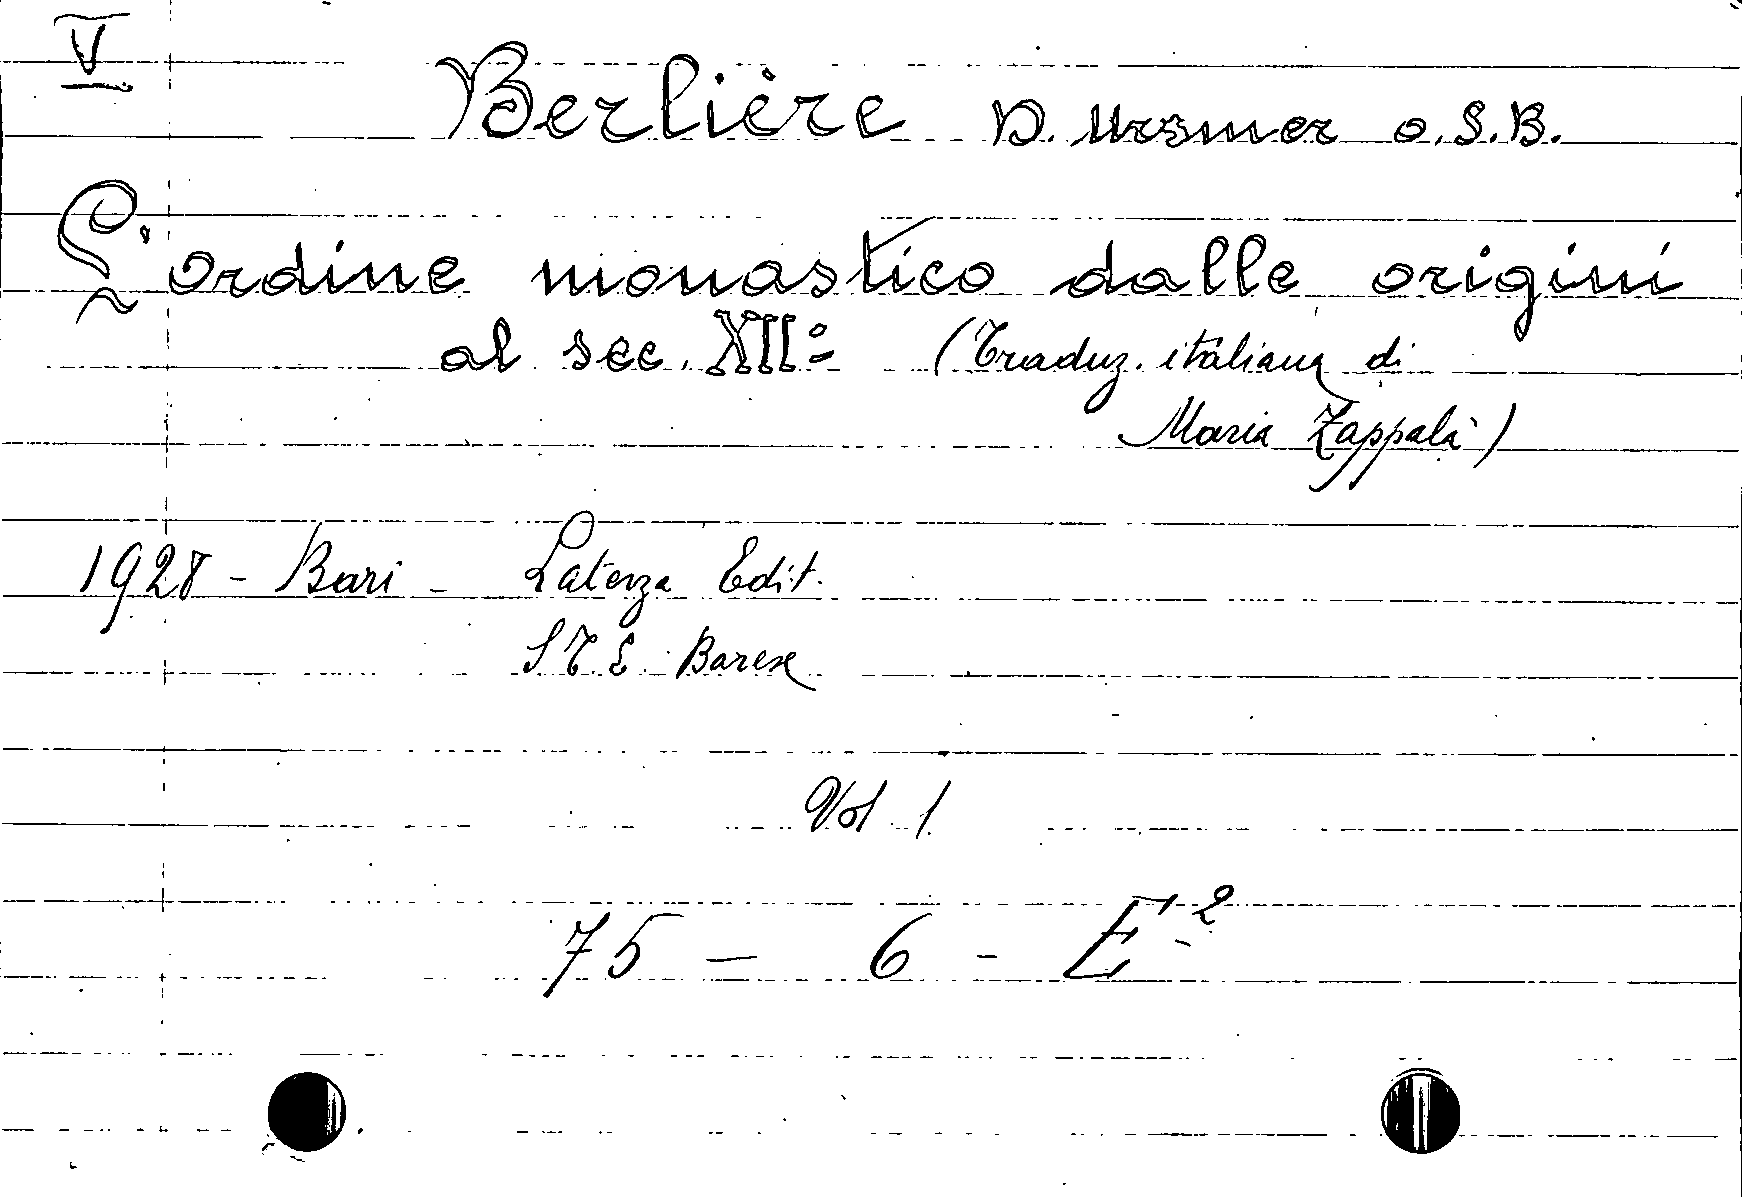 V
Berlière D. Ursmer O.S.B.
L'ordine monastico dalle origini
al sec. XII° (Traduz. italiana di
Maria Zappalà)
1928 - Bari - Laterza Edit.
S T E Barese
Vol 1
75 - 6 - E-2